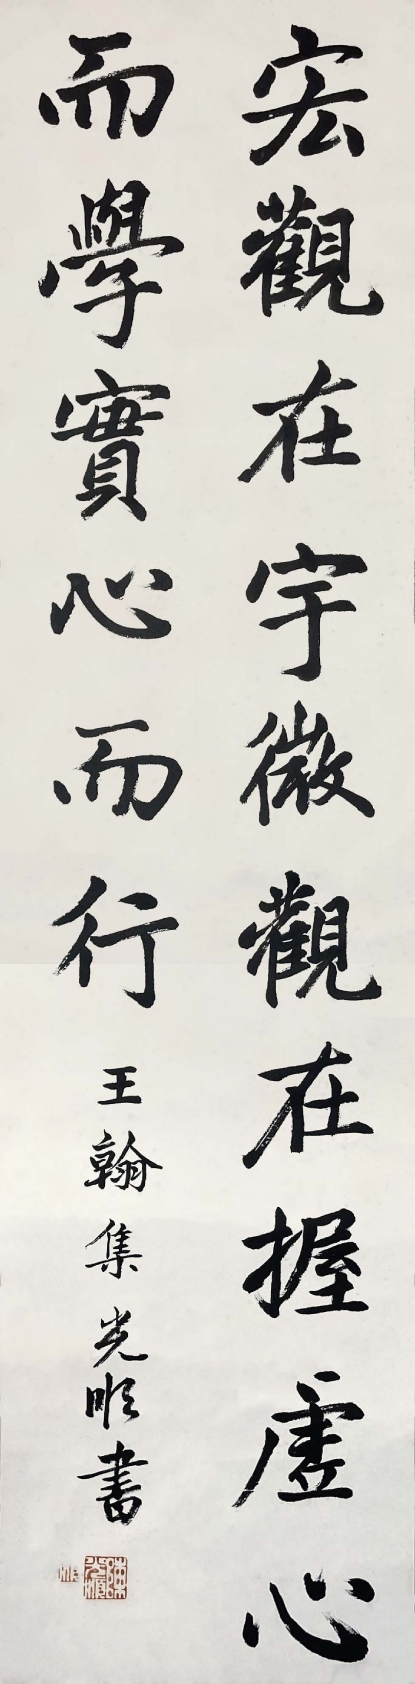 宏觀在宇微觀在握虛心
而學實心而行
王翰集光順書